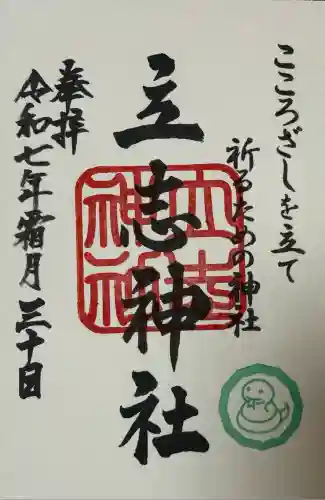 こころざしを立て
祈るための神社
立志神社
奉拝
令和七年霜月三十日
立志神社